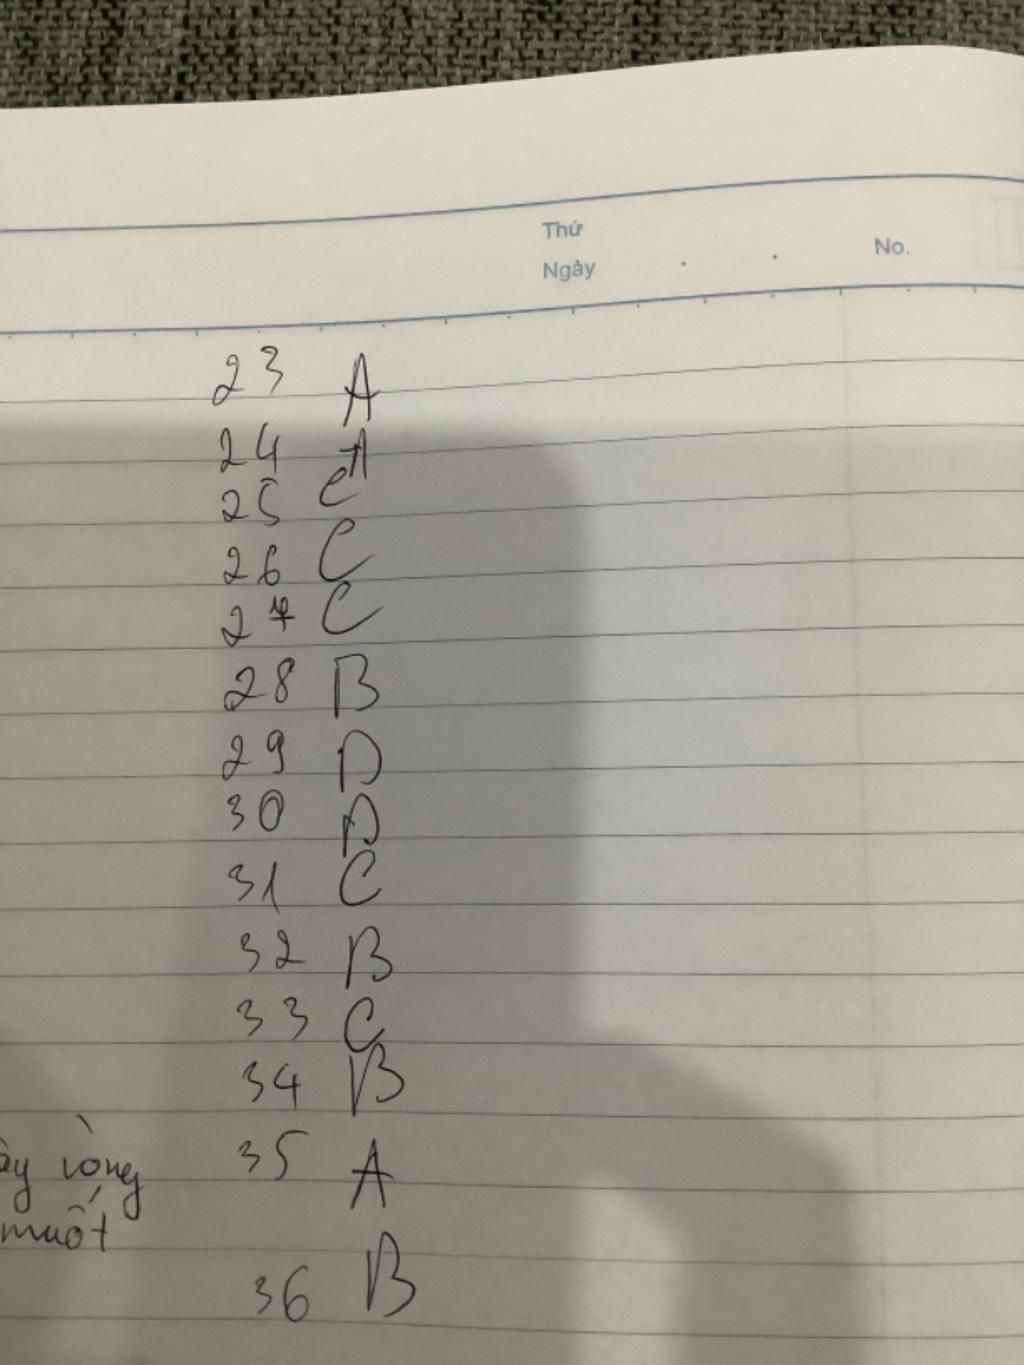 Thứ
Ngày
No.
23 A
24 A
25 C
26 C
27 C
28 B
29 D
30 D
31 C
32 B
33 C
34 B
35 A
vòng
muốt
36 B